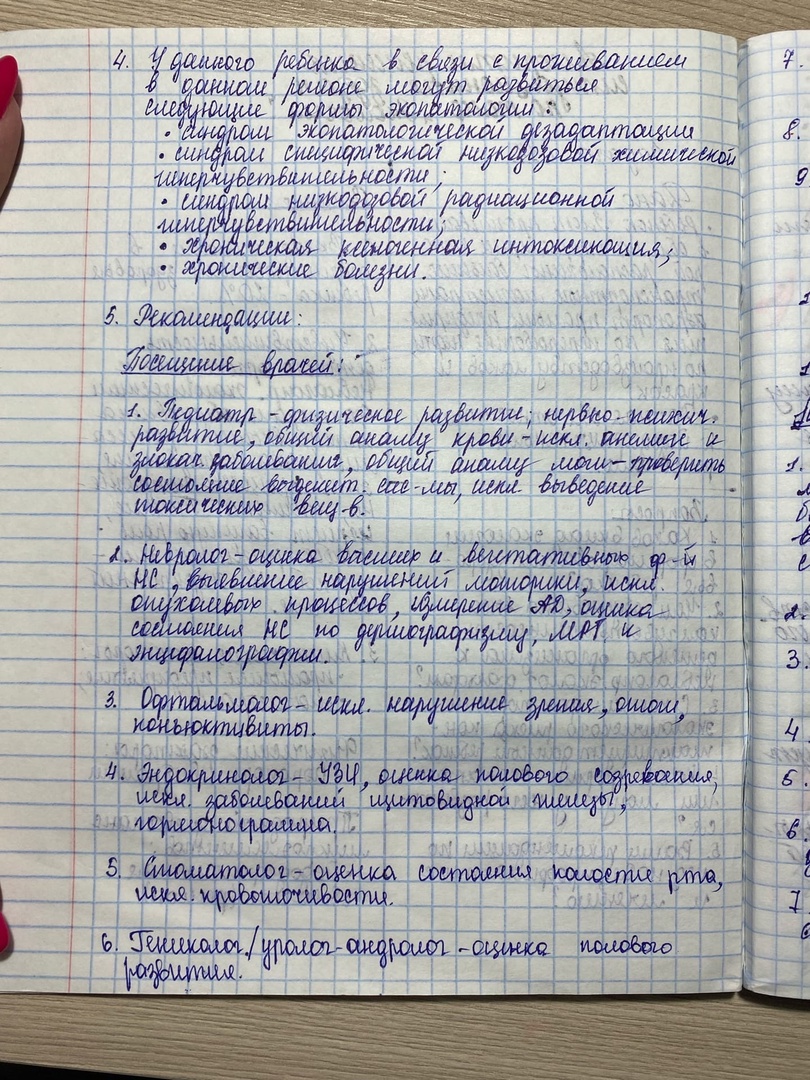 4. У данного ребенка в связи с проживанием
в данном регионе могут развиться
следующие формы экопатологии:
• синдром экопатологической дезадаптации
• синдром специфической низкодозовой химической
гиперчувствительности;
• синдром низкодозовой радиационной
гиперчувствительности;
• хроническая ксеногенная интоксикация;
• хронические болезни.
5. Рекомендации:
Посещение врачей:
1. Педиатр - физическое развитие; нервно-психич.
развитие, общий анализ крови - искл. анемии и
злокач. заболевания, общий анализ мочи - проверить
состояние выделит. сис-мы, искл. выведение
токсических вещ-в.
2. Невролог - оценка высших и вегетативных ф-й
НС, выявление нарушений моторики, искл.
опухолевых процессов, измерение АД, оценка
состояния НС по дермографизму, МРТ и
энцефалографии.
3. Офтальмолог - искл. нарушение зрения,
конъюктивиты.
4. Эндокринолог - УЗИ, оценка полового созревания,
искл. заболеваний щитовидной железы,
гормонограмма.
5. Стоматолог - оценка состояния полости рта,
искл. кровоточивости.
6. Гениколог/уролог-андролог - оценка полового
развития.
7.
8.
9
1.
2.
3.
4.
5.
6.
7